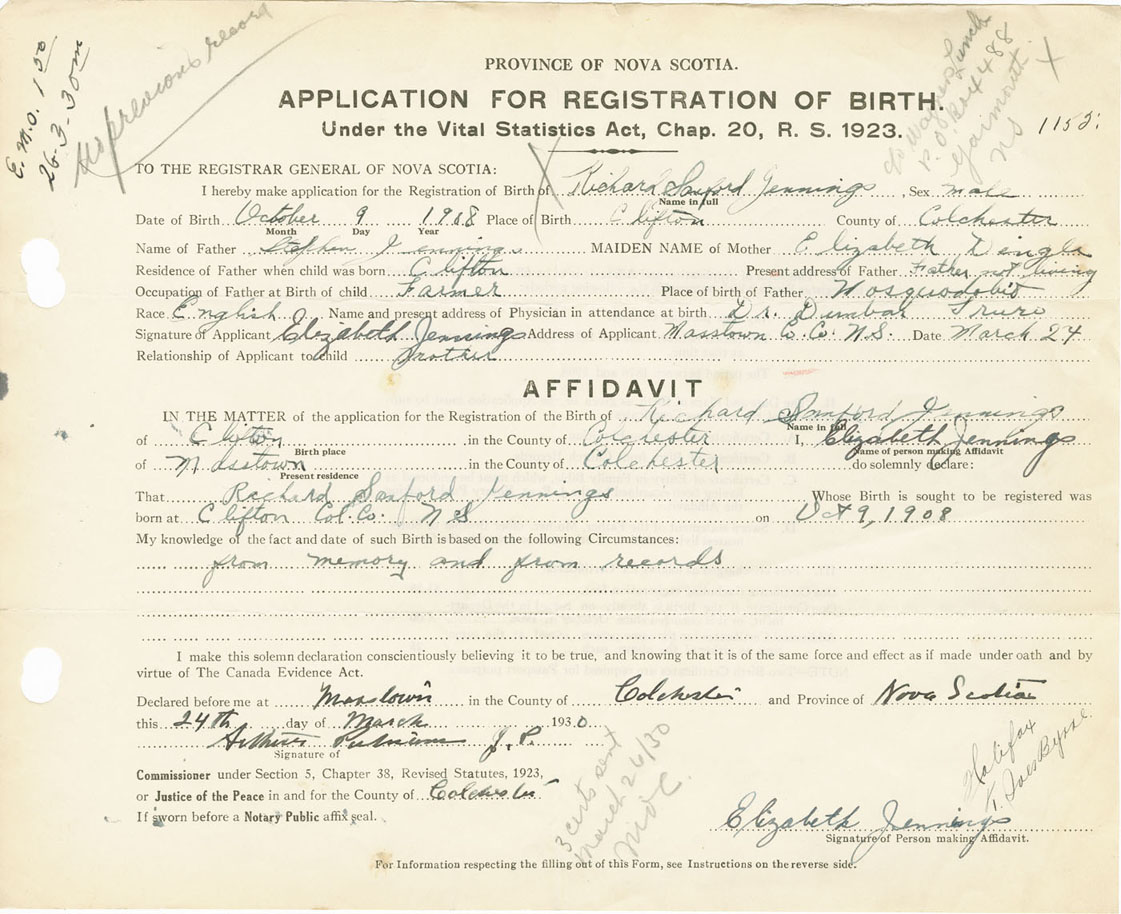 E. M. O. 1 00
26-3-30 m
No previous record
P. O. Box 488
Yarmouth
NS
X
1152
PROVINCE OF NOVA SCOTIA.
APPLICATION FOR REGISTRATION OF BIRTH.
Under the Vital Statistics Act, Chap. 20, R. S. 1923.
TO THE REGISTRAR GENERAL OF NOVA SCOTIA:
I hereby make application for the Registration of Birth of Richard Sanford Jennings, Sex male
Name in full
Date of Birth October 9 1908 Place of Birth Clifton County of Colchester
Month Day Year
Name of Father Stephen Jennings MAIDEN NAME of Mother Elizabeth Dingle
Residence of Father when child was born Clifton Present address of Father Father not living
Occupation of Father at Birth of child Farmer Place of birth of Father
Race English Name and present address of Physician in attendance at birth Dr. Dunbar Truro
Signature of Applicant Elizabeth Jennings Address of Applicant Masstown Co. Co. N.S. Date March 24
Relationship of Applicant to child Mother
AFFIDAVIT
IN THE MATTER of the application for the Registration of the Birth of Richard Sanford Jennings
Name in full
of Clifton in the County of Colchester I, Elizabeth Jennings
Birth place Name of person making Affidavit
of Masstown in the County of Colchester do solemnly declare:
Present residence
That Richard Sanford Jennings Whose Birth is sought to be registered was
born at Clifton Col. Co. N S on Oct 9, 1908
My knowledge of the fact and date of such Birth is based on the following Circumstances:
from memory and from records
I make this solemn declaration conscientiously believing it to be true, and knowing that it is of the same force and effect as if made under oath and by
virtue of The Canada Evidence Act.
Declared before me at Masstown in the County of Colchester and Province of Nova Scotia
this 24th day of March 1930
Arthur Putnam J. P.
Signature of
Commissioner under Section 5, Chapter 38, Revised Statutes, 1923,
or Justice of the Peace in and for the County of Colchester
If sworn before a Notary Public affix seal.
3 certs sent
March 26/30
Halifax
Elizabeth Jennings
Signature of Person making Affidavit.
For Information respecting the filling out of this Form, see Instructions on the reverse side.